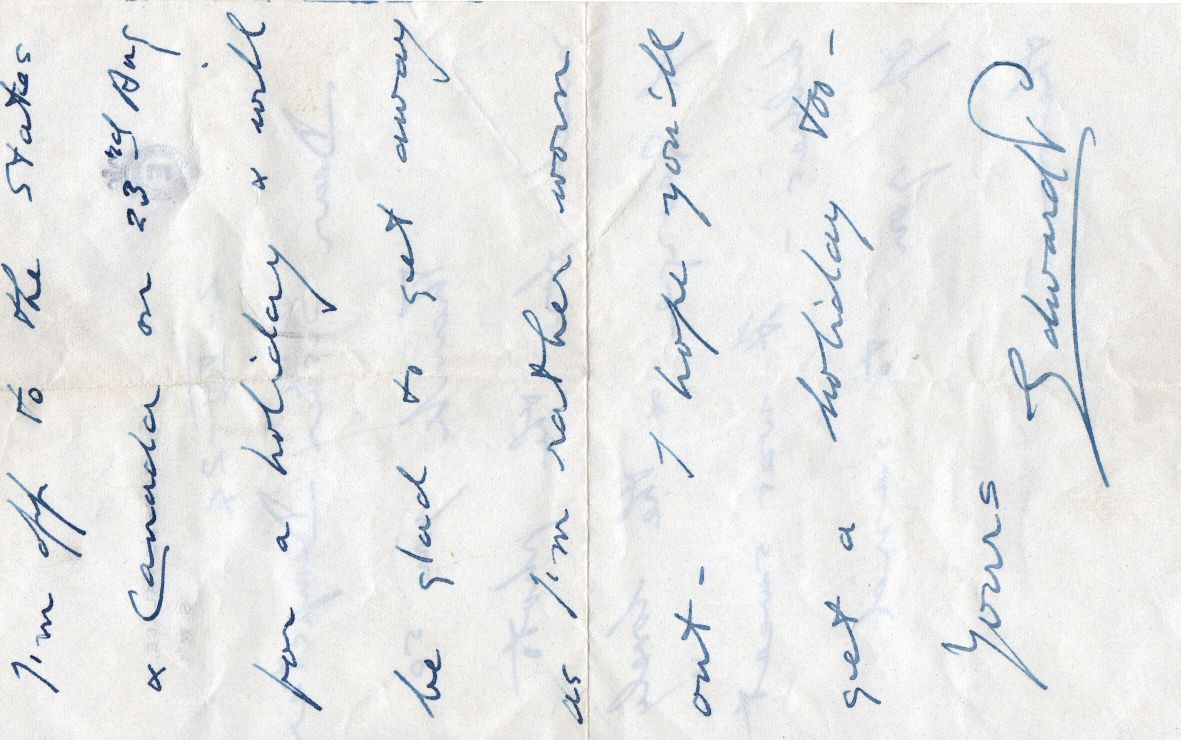 I'm off to the States
& Canada on 23rd Aug
for a holiday & will
be glad to get away
as I'm rather worn
out - I hope you'll
get a holiday too -
Yours
Edward P